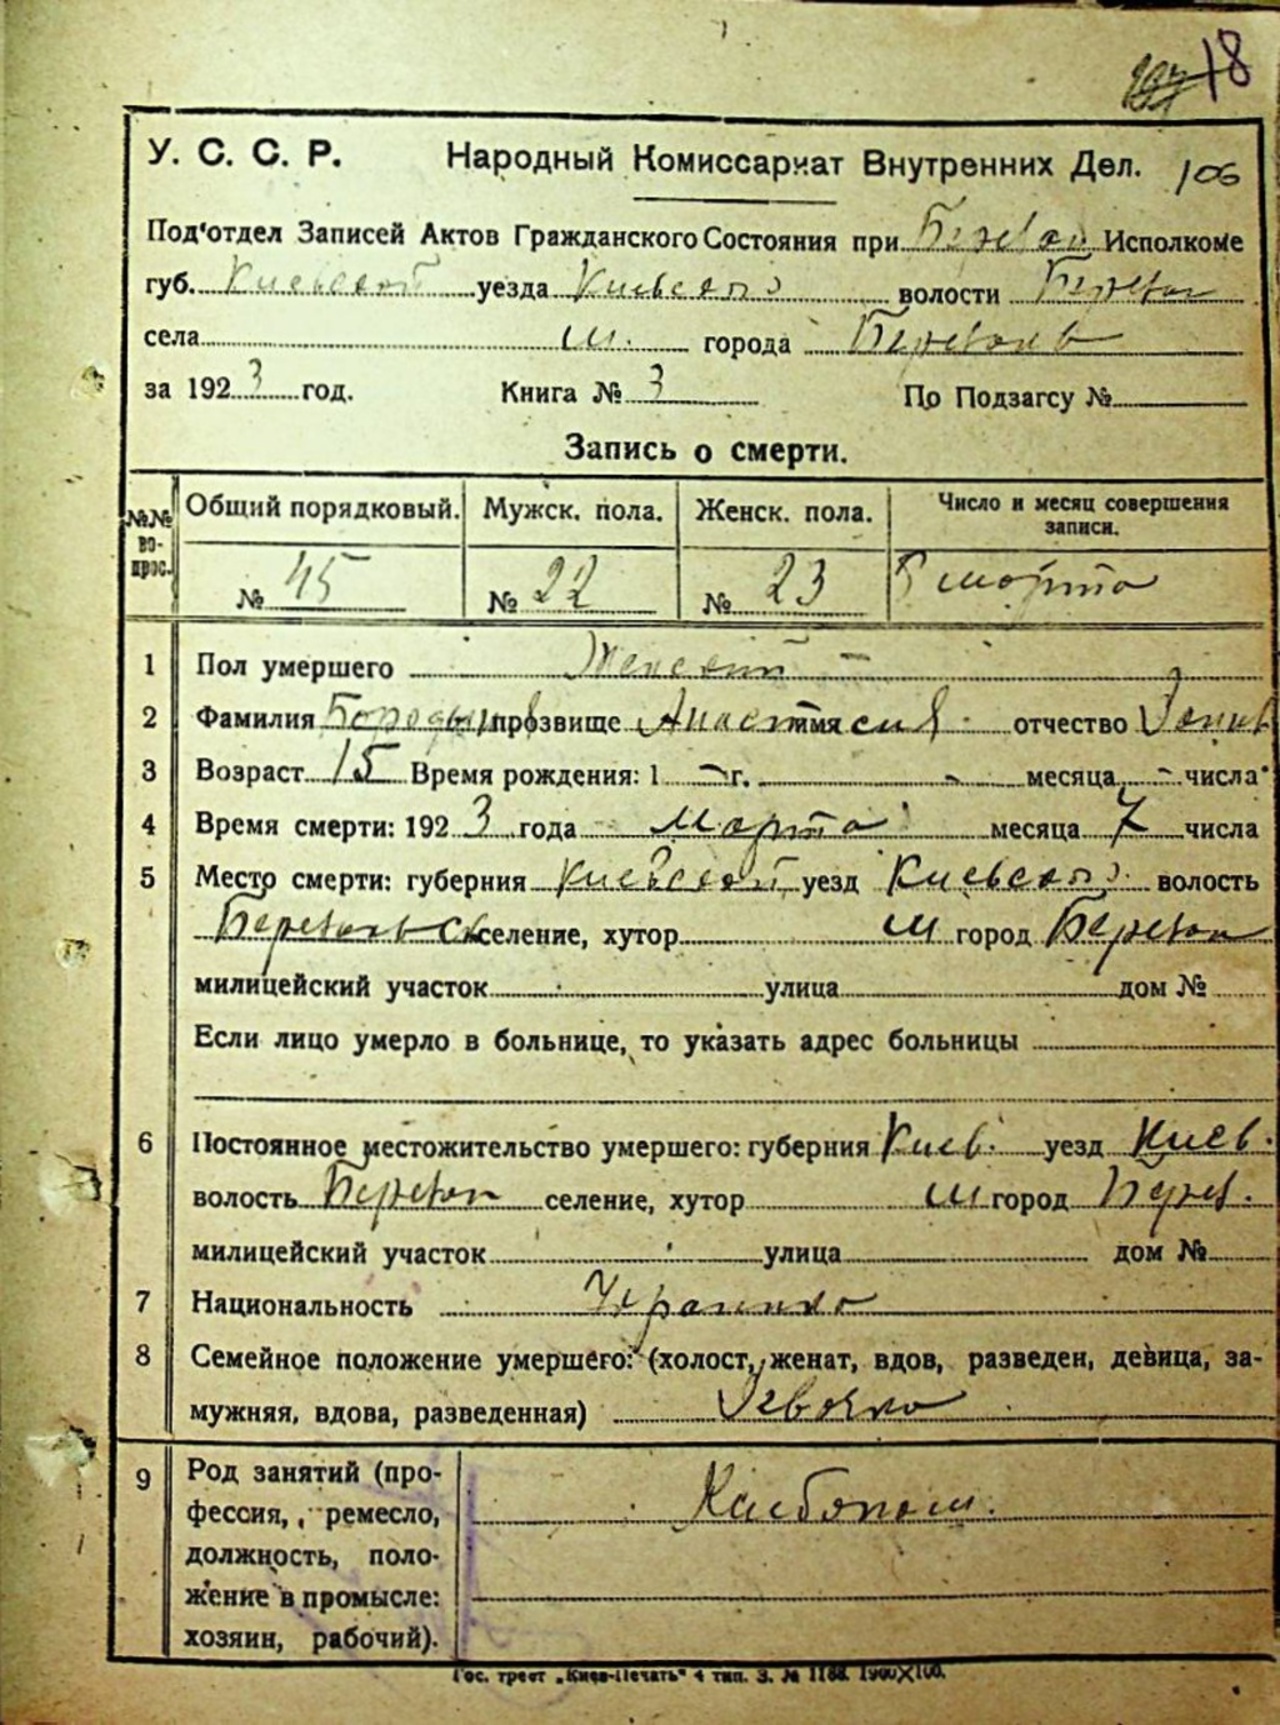 18
У. С. С. Р. Народный Комиссариат Внутренних Дел. 106
Под'отдел Записей Актов Гражданского Состояния при Исполкоме
губ. Киевской уезда Киевского волости
села м. города
за 1923 год. Книга № 3 По Подзагсу №
Запись о смерти.
№№ во- прос. Общий порядковый. Мужск. пола. Женск. пола. Число и месяц совершения записи.
№ 45 № 22 № 23 марта
1 Пол умершего Женский —
2 Фамилия прозвище Анастасия имя отчество
3 Возраст 15 Время рождения: 1 — г. - месяца - числа
4 Время смерти: 1923 года Марта месяца 7 числа
5 Место смерти: губерния Киевской уезд Киевского волость
селение, хутор м город
милицейский участок улица дом №
Если лицо умерло в больнице, то указать адрес больницы
6 Постоянное местожительство умершего: губерния Киев. уезд Киев.
волость селение, хутор м город
милицейский участок улица дом №
7 Национальность Украинка
8 Семейное положение умершего: (холост, женат, вдов, разведен, девица, за-
мужняя, вдова, разведенная)
9 Род занятий (про-
фессия, ремесло,
должность, поло-
жение в промысле:
хозяин, рабочий).
Гос. трест „Киев-Печать" 4 тип. З. № 1188. 1900X100.